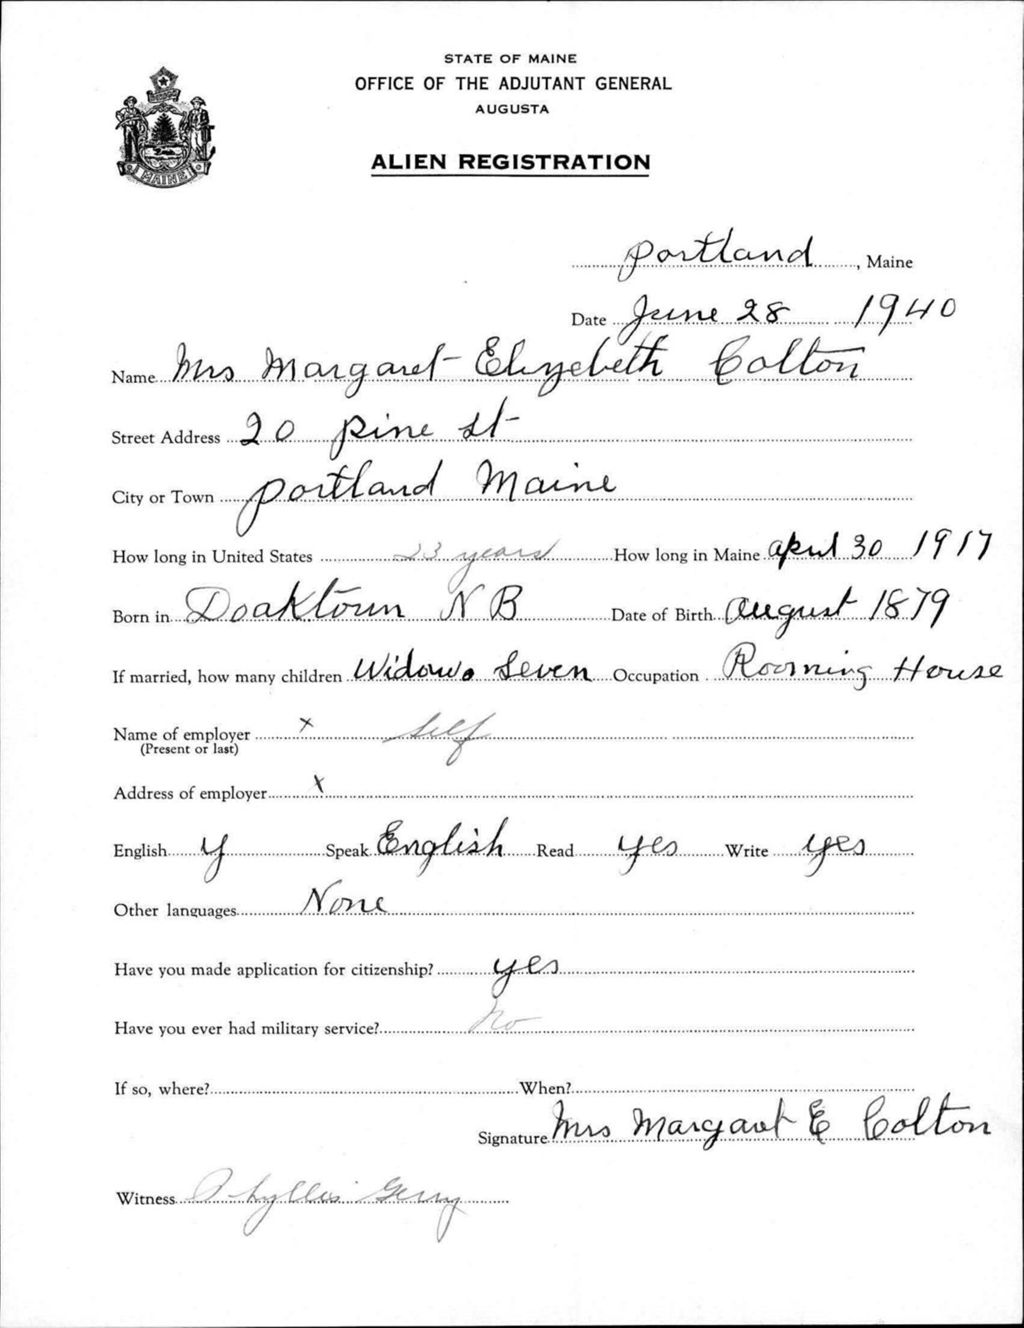 STATE OF MAINE
OFFICE OF THE ADJUTANT GENERAL
AUGUSTA
ALIEN REGISTRATION
MAINE
Portland, Maine
Date June 28 1940
Name Mrs Margaret Elizebeth Colton
Street Address 20 Pine St
City or Town Portland Maine
How long in United States 23 years How long in Maine April 30 1917
Born in Doaktown N B Date of Birth August 1879
If married, how many children Widow. Seven Occupation Rooming House
Name of employer x Self
(Present or last)
Address of employer x
English y Speak English Read yes Write yes
Other languages None
Have you made application for citizenship? yes
Have you ever had military service? No
If so, where? When?
Signature Mrs Margaret E Colton
Witness Phyllis Gerry